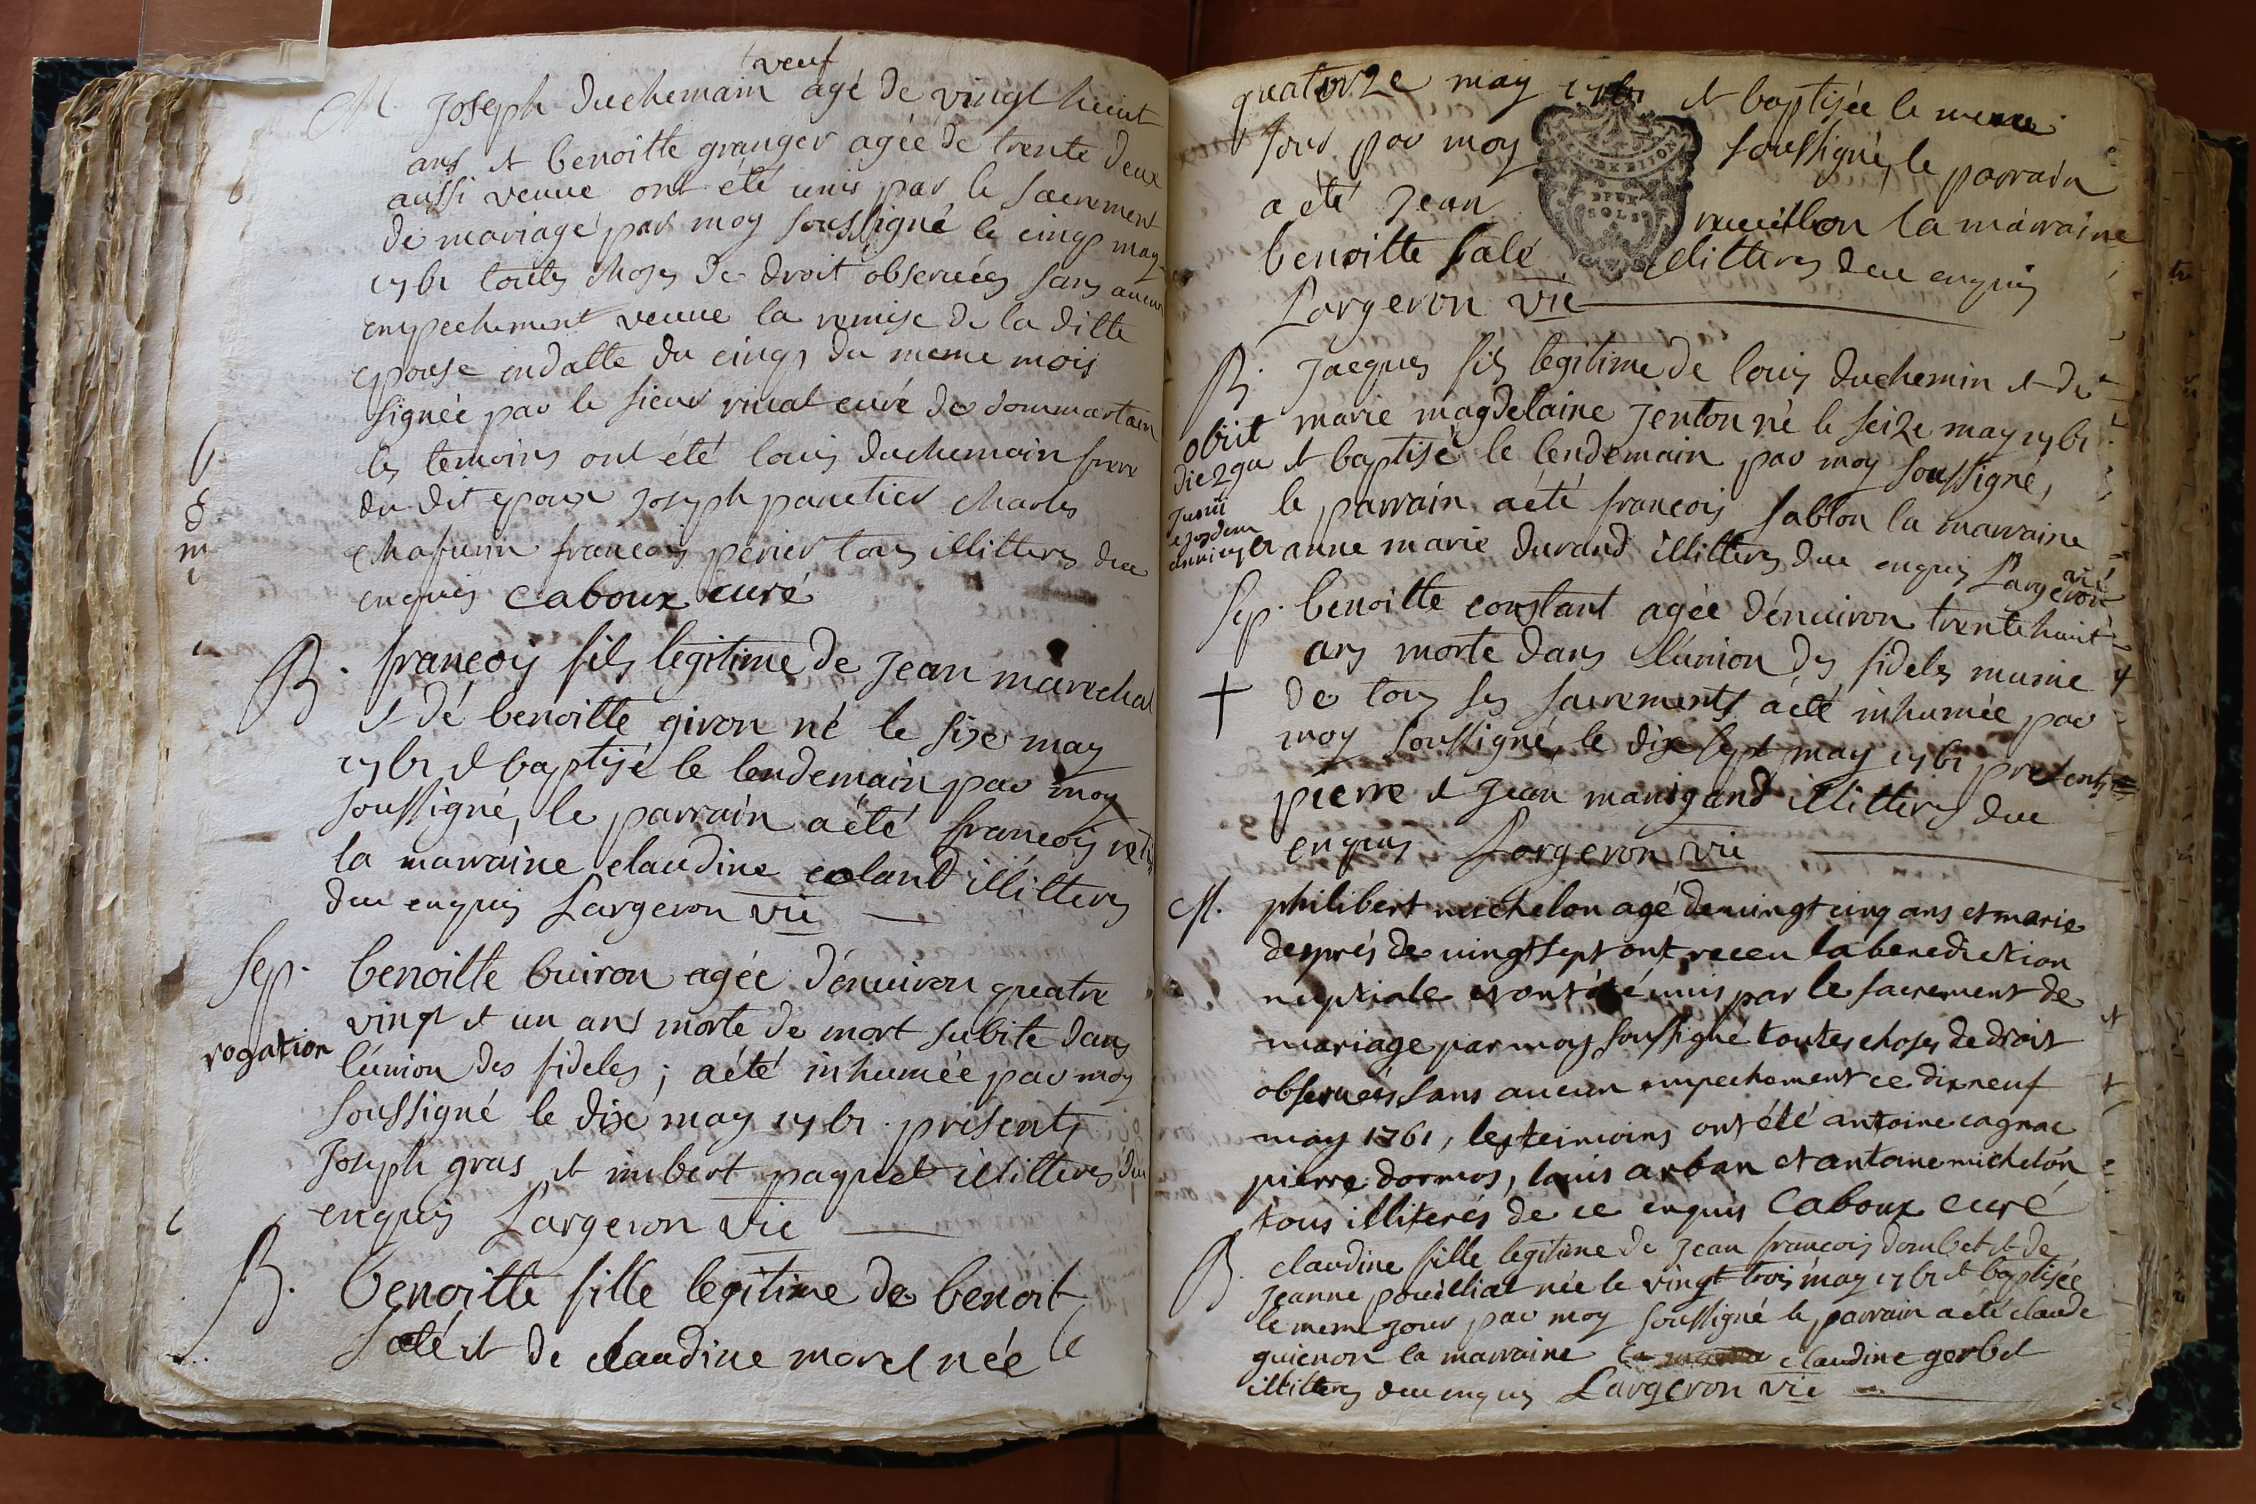 veuf
M. Joseph duchemain agé de vingt huit
ans et benoitte granger agée de trente deux
aussi veuve ont été unis par le sacrement
de mariage par moy soussigné le cinq may
1761 toutes choses de droit observées sans aucun
empechement veuue la remise de la ditte
epouse en datte du cinq du meme mois
signée par le sieur rival curé de dommartain
les temoins ont été louis duchemain frere
du dit epoux Joseph panetier charles
françois perier tous illitteres due
enquis caboux curé
B. françois fils legitime de Jean marechal
et de benoitte giron né le six may
1761 et baptisé le lendemain par moy
soussigné, le parrain a été françois
la marraine claudine coland illitteres
due enquis Largeron vic
Sep. benoitte buiron agée d'enuiron quatre
vingt et un ans morte de mort subite dans
rogation
l'union des fideles ; a été inhumée par moy
soussigné le dix may 1761 presents
Joseph gras et imbert paquet illitteres due
enquis Largeron vic
B. benoitte fille legitime de benoit
salé et de claudine morel née le
quatorze may 1761 et baptisée le meme
Jour par moy soussigné, le parrain
a été Jean la marraine
benoitte salé illitteres due enquis
Largeron vic
DEUX
SOLS
B. Jacques fils legitime de louis duchemin et de
marie magdelaine Jenton né le seize may 1761
et baptisé le lendemain par moy soussigné,
le parrain a été françois sablon la marraine
anne marie durand illitteres due enquis Largeron
vic
obiit
die 2da
Junii
ejusdem
anni 1761
Sep. benoitte constant agée d'enuiron trente huit
ans morte dans l'union des fideles munie
de tous ses sacrements a été inhumée par
moy soussigné, le dix sept may 1761 presents
pierre et Jean manigand illitteres due
enquis Largeron vic
M. philibert michelon agé de uingt cinq ans et marie
després de uingt sept ont receu la benediction
nuptiale et ont été unis par le sacrement de
mariage par moy soussigné toutes choses de droit
obseruées sans aucun empechement ce dix neuf
may 1761, les teimoins ont été antoine cagnac
pierre dormos, louis arban et antoine michelon
tous illiterés de ce enquis Caboux curé
B. claudine fille legitime de Jean françois dombet et de
Jeanne pouilliat née le vingt trois may 1761 et baptisée
le meme Jour par moy soussigné le parrain a été claude
guienon la marraine claudine gerbet
illitteres due enquis Largeron vic